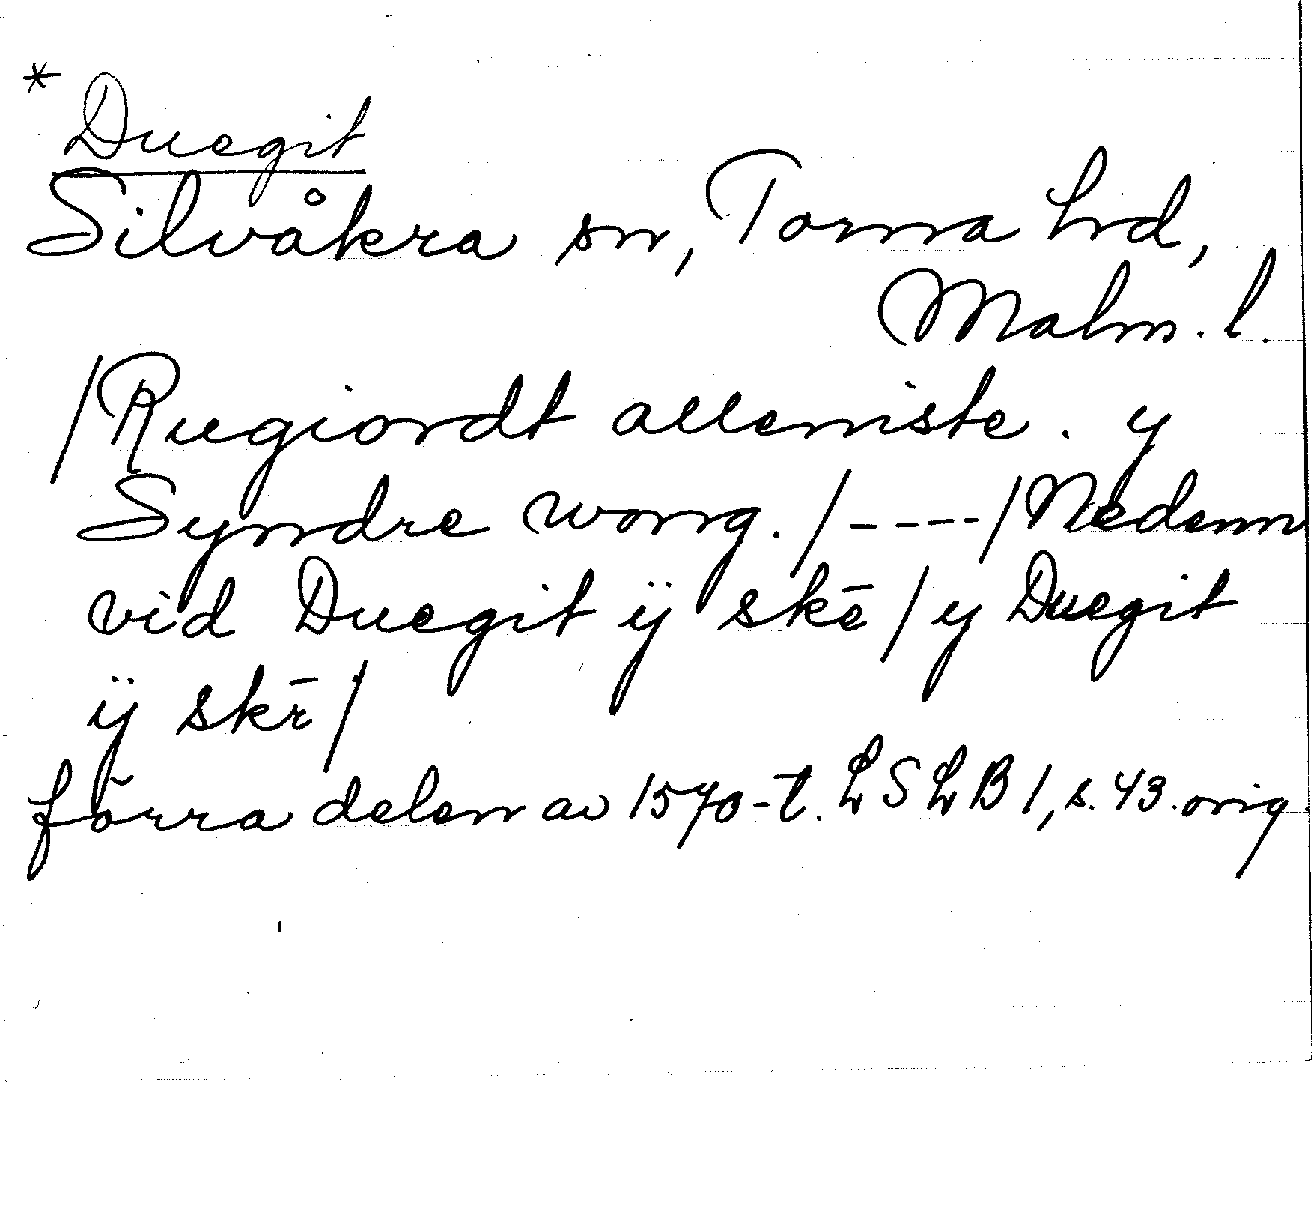 * Duegit
Silvåkra sn, Torna hd,
Malm. l.
/Rugiordt alleniste. y
Syndre wong. / - - - - / Nedenn
vid Duegit ÿ skē / y Duegit
ÿ skr̄ /
förra delen av 1570-t. LSLB 1, s. 43. orig.